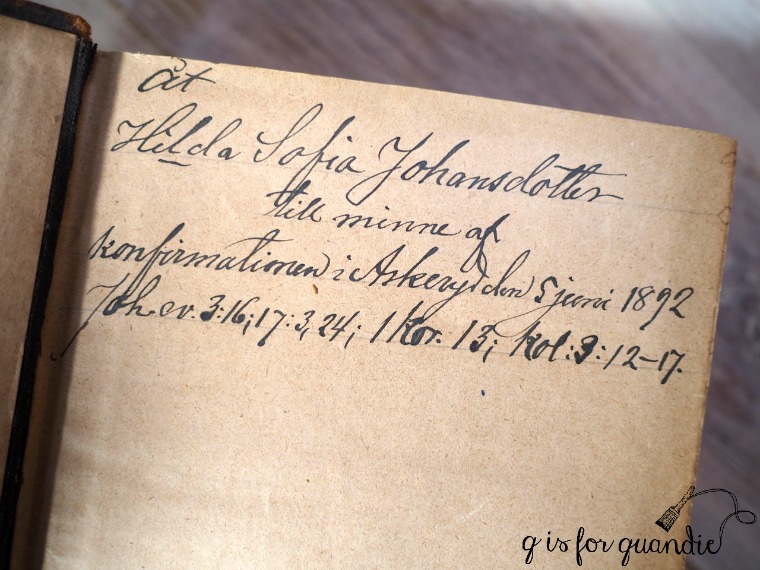 åt
Hilda Sofia Johansdotter
till minne af
konfirmationen i Askeryd den 5 juni 1892
Joh. ev. 3:16; 17:3, 24; 1 Kor. 13; Kol: 3: 12-17.
g is for quandie